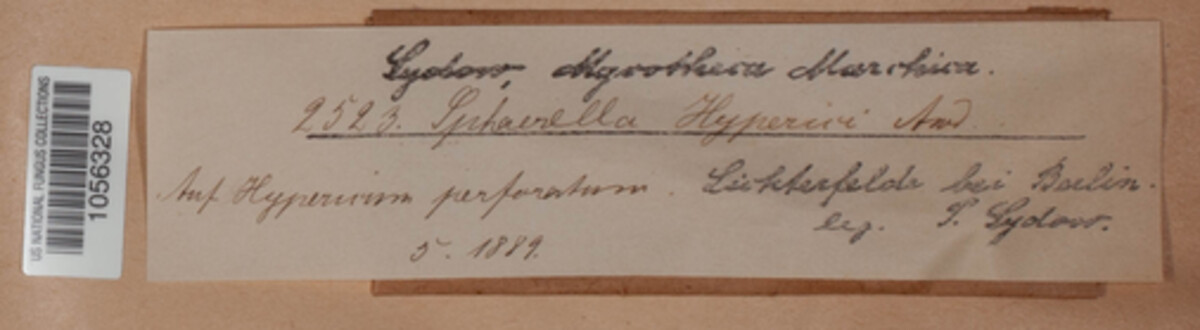 US NATIONAL FUNGUS COLLECTIONS
1056328
Sydow, Mycotheca Marchica.
2523. Sphaerella Hyperici Awd.
Auf Hypericum perforatum. Lichterfelde bei Berlin.
leg. P. Sydow.
5. 1889.